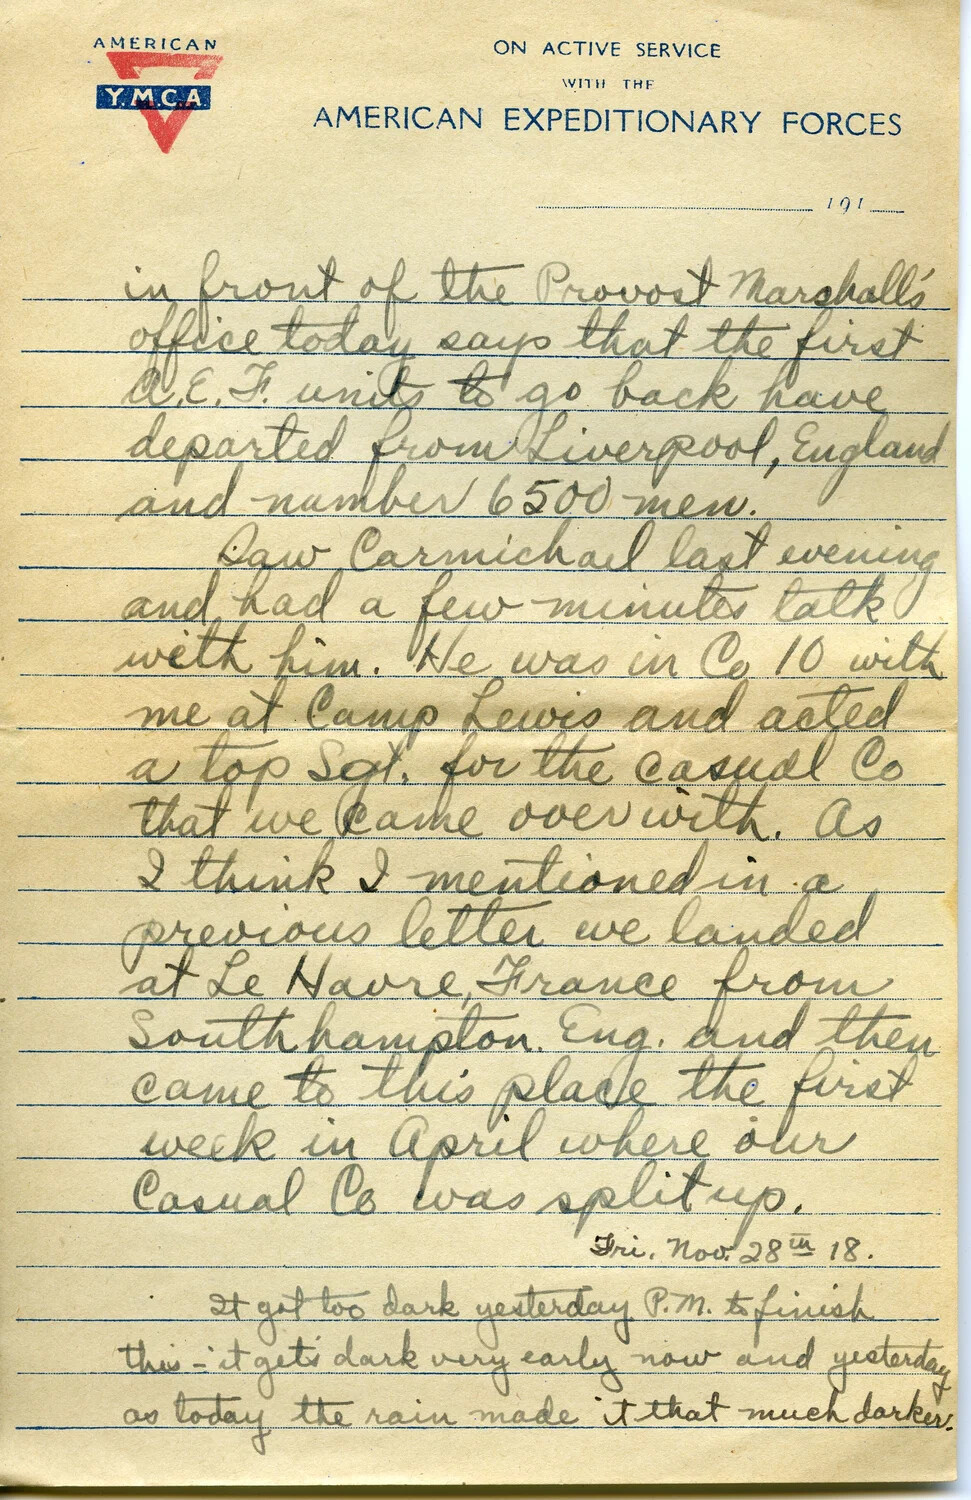 AMERICAN
Y.M.C.A
ON ACTIVE SERVICE
WITH THE
AMERICAN EXPEDITIONARY FORCES
191
in front of the Provost Marshall's
office today says that the first
A.E.F. units to go back have
departed from Liverpool, England
and number 6500 men.
Saw Carmichael last evening
and had a few minutes talk
with him. He was in Co 10 with
me at Camp Lewis and acted
a top Sgt. for the casual Co
that we came over with. As
I think I mentioned in a
previous letter we landed
at Le Havre, France from
Southhampton. Eng. and then
came to this place the first
week in April where our
Casual Co was split up.
Fri. Nov. 28th 18.
It got too dark yesterday P.M. to finish
this - it gets dark very early now and yesterday
as today the rain made it that much darker.